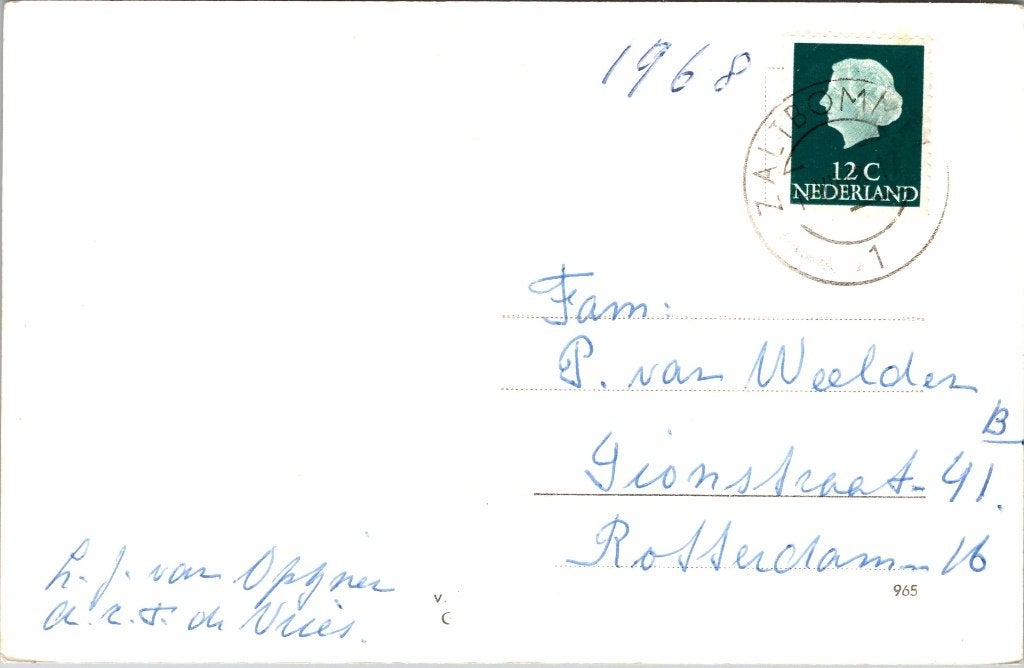 1968
ZALTBOMM
12 C
NEDERLAND
1
Fam:
P. van Weelden
B
Gionstraat- 41.
Rotterdam- 16
965
L. J. van Opijnen
de Vries.
V.
C